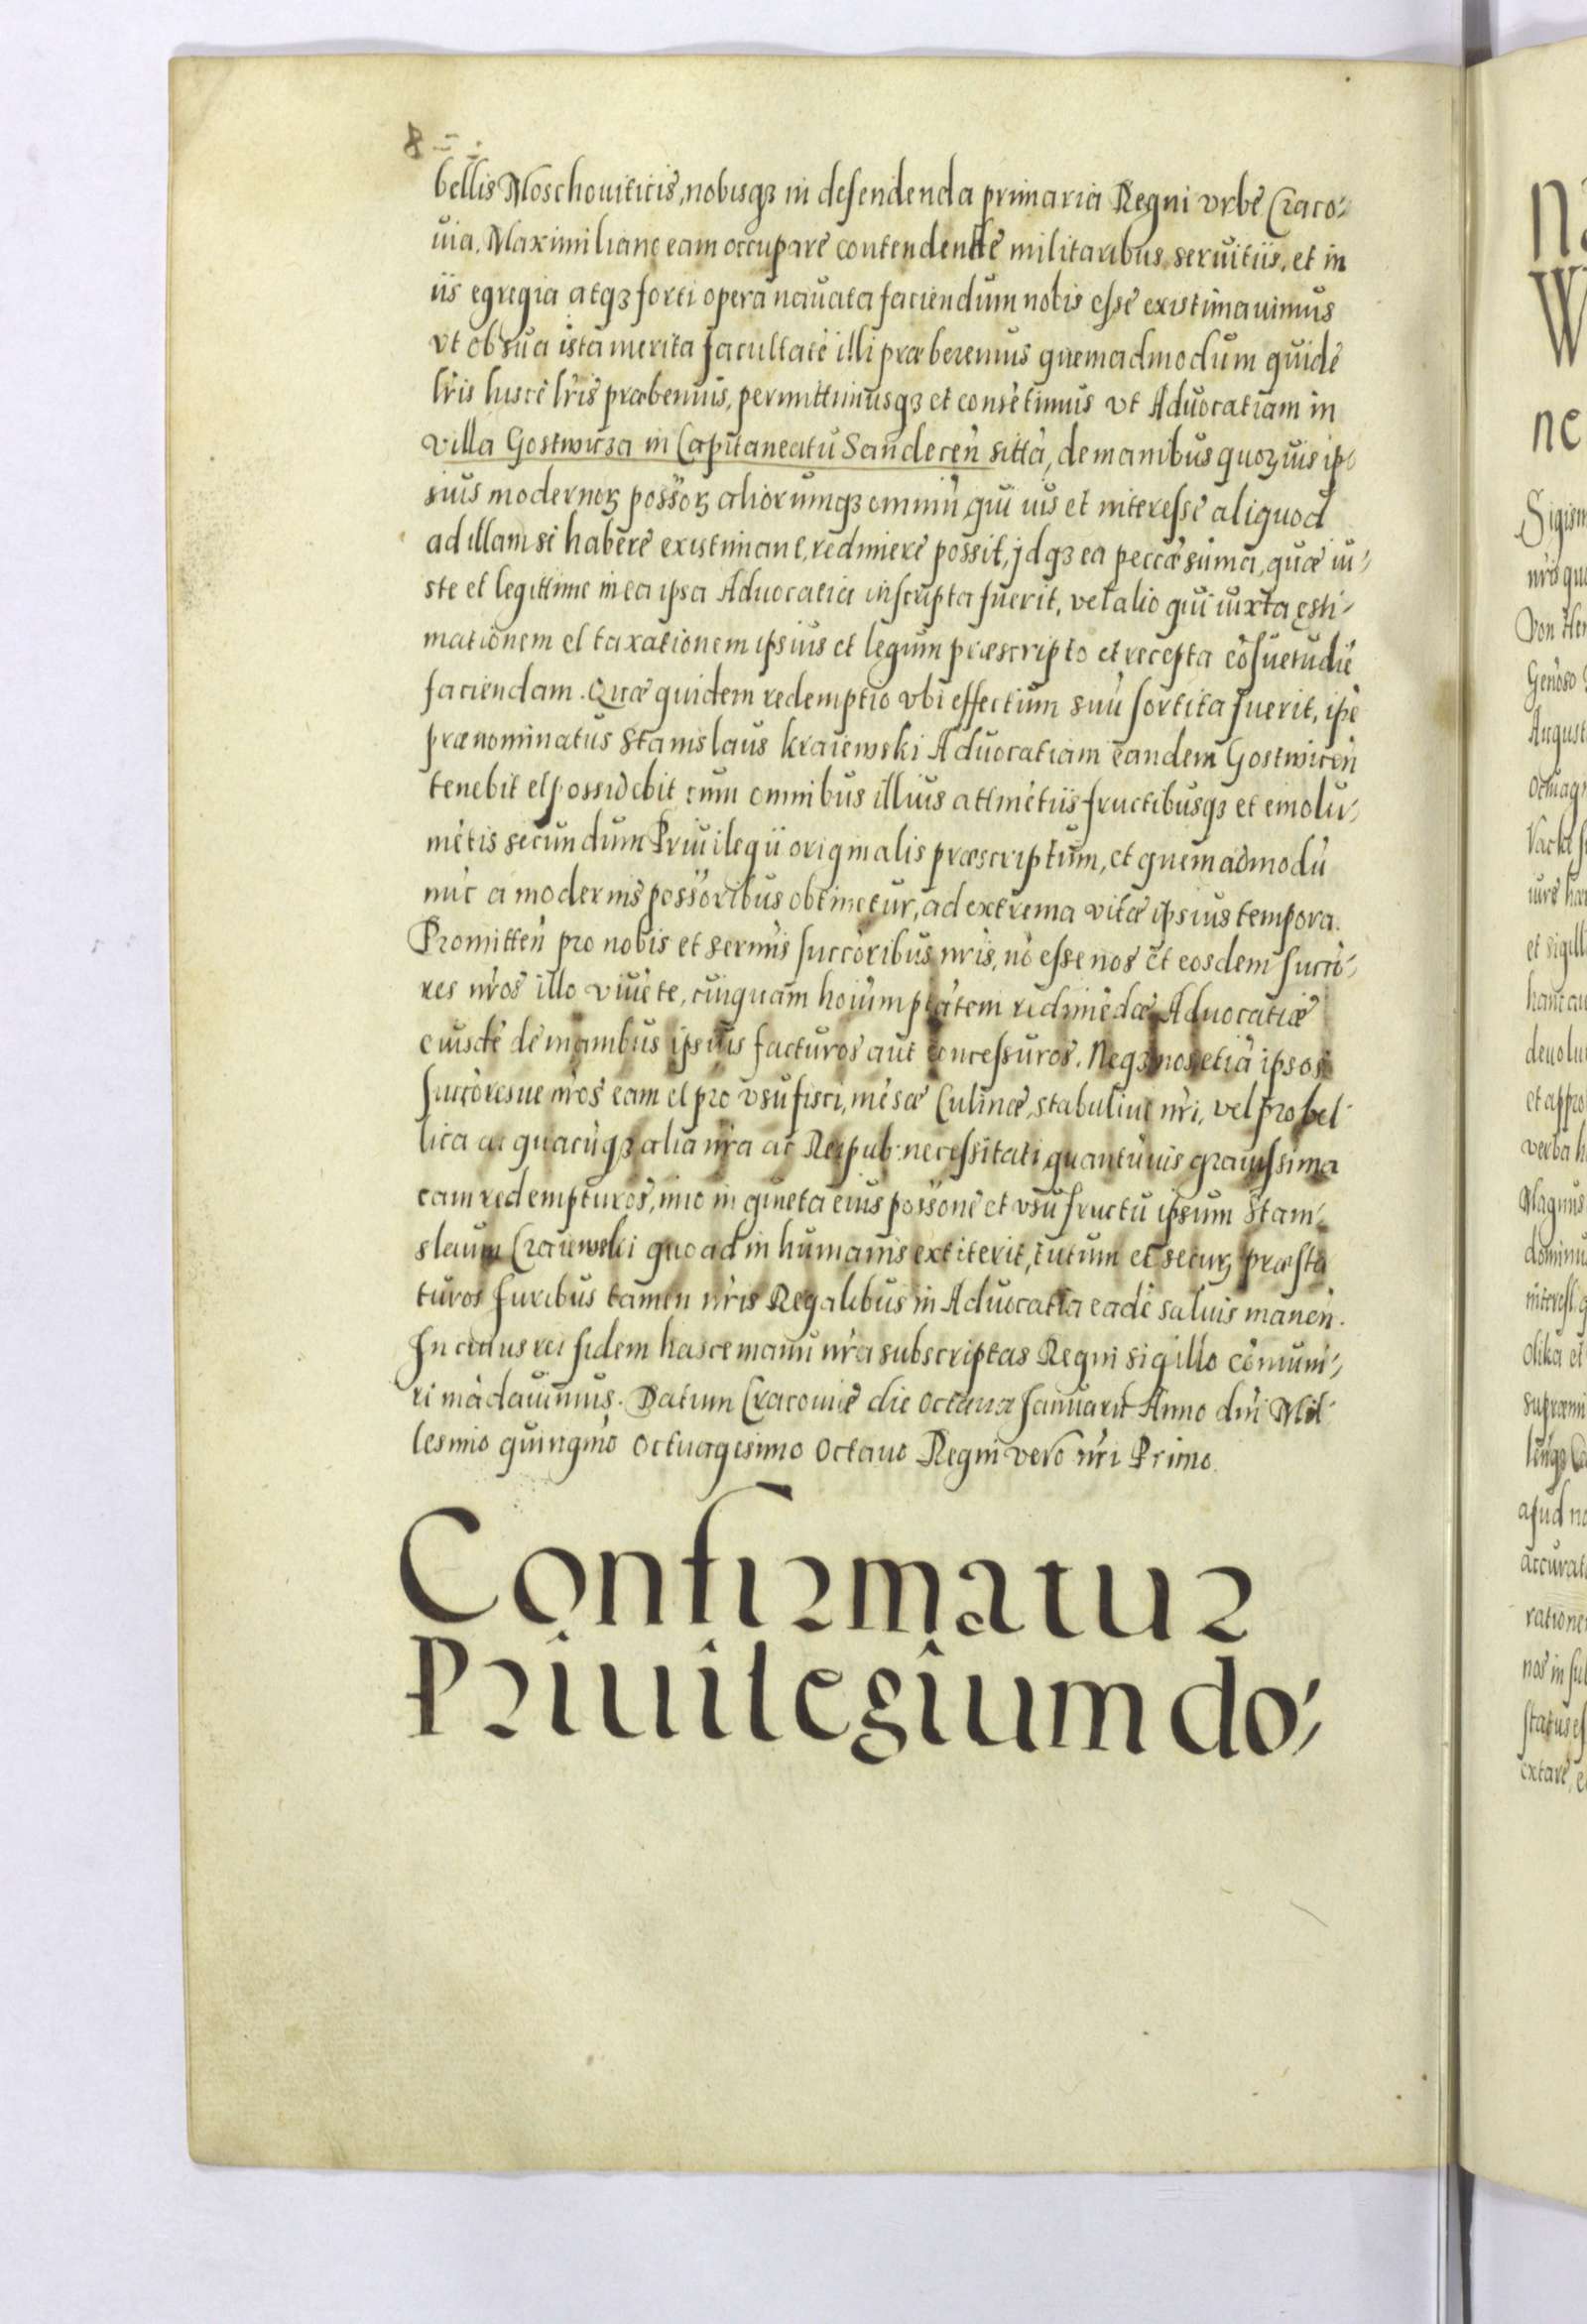 8
bellis Moschouiticis, nobisqꝫ in defendenda primaria Regni vrbe Craco-
uia, Maximiliano eam occupare contendente militaribus seruitiis, et in
iis egregia atqꝫ forti opera nauata faciendum nobis esse existimauimus
vt ob sua ista merita facultatē illi præberemus quemadmodum quidē
lr̄is hisce lr̄is præbemus, permittimusqꝫ et consētimus vt Aduocatiam in
villa Gostwicza in Capitaneatu Sandecen̄ sittā, de manibus quoꝝuis ip-
sius modernoꝝ posso᷑ꝝ aliorumqꝫ omniū qui ius et interesse aliquod
ad illam se habere existimant, redimere possit, jdqꝫ ea peccæ sūma, quæ iu-
ste et legittime in ea ipsa Aduocatia inscripta fuerit, vel alio qui iuxta ęsti-
mationem et taxationem ipsius et legum præscripto et recepta cōsuetudīe
faciendam. Quæ quidem redemptio vbi effectum suū sortita fuerit, ip̄e
prænominatus Stanislaus kraiewski Aduocatiam eandem Gostwicen̄
tenebit et possidebit cum omnibus illius attinētiis fructibusqꝫ et emolu-
mētis secundum Priuilegii originalis præscriptum, et quemadmodū
nūc a modernis possōribus obtinetur, ad extrema vitæ ipsius tempora.
Promitten̄ pro nobis et sermis succōribus nr̄is, nō esse nos et eosdem succō-
res nr̄os illo viuēte, cuiquam hoīum ptātem redimēdæ Aduocatiæ
eiusdē de manibus ipsius facturos aut concessuros. Neqꝫ nos etiā ipsos
succōresue nr̄os eam et pro vsu fisci, mēsæ Culinæ, stabuliue nr̄i, vel pro bel-
lica ac quacūqꝫ alia nr̄a ac Reipub: necessitati quantūuis grauissima
eam redempturos, imo in quieta eius possōne et vsufructu ipsum Stani-
slaum Craiewski quoad in humanis extiterit, tutum et secuꝝ præsta
turos Iuribus tamen nr̄is Regalibus in Aduocatia eadē saluis manen̄.
In cuius rei fidem hasce manu nr̄a subscriptas Regni sigillo cōmuni-
ri mādauimus. Datum Cracouiæ die Octaua Januarii Anno dn̄i Mil-
lesimo quingmo Octuagesimo Octauo Regni vero nr̄i Primo.
Confirmatur
Priuilegium do-